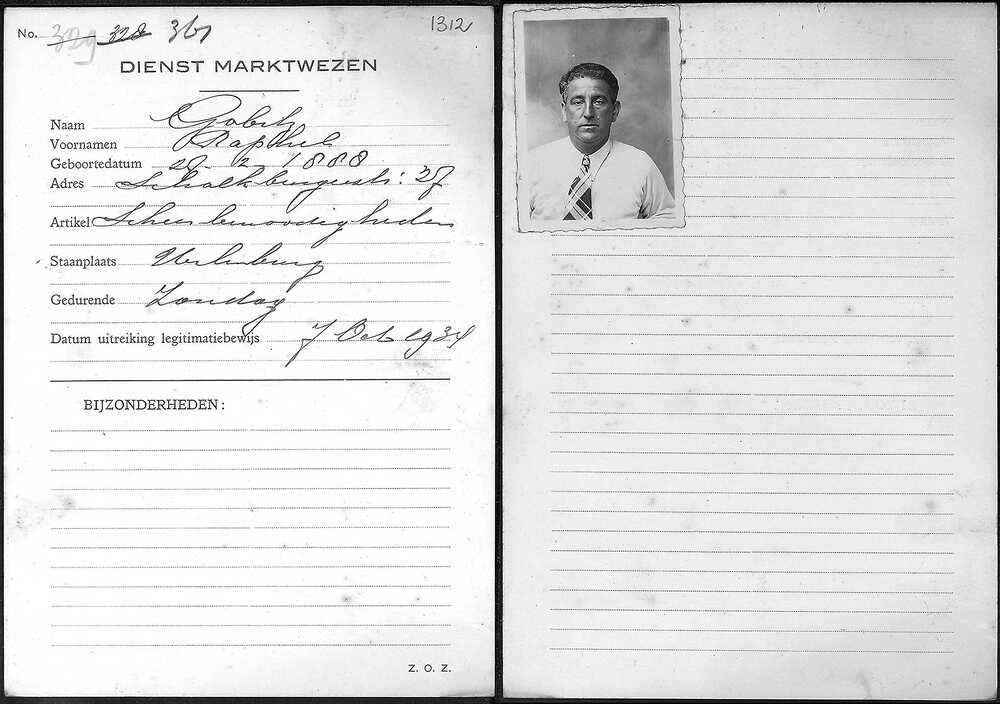 No. 329 328 361
1312
DIENST MARKTWEZEN
Naam Gobitz
Voornamen Raphel
Geboortedatum 28-2 1888
Adres Schalkburgerstr: 37
Artikel Scheerbenoodigheden
Staanplaats Uilenburg
Gedurende Zondag
Datum uitreiking legitimatiebewijs 7 Oct 1934
BIJZONDERHEDEN:
Z. O. Z.